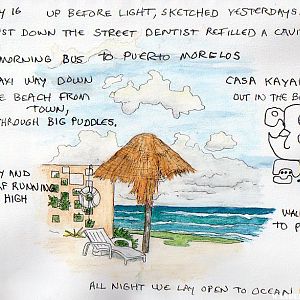 Y 16 UP BEFORE LIGHT, SKETCHED YESTERDAYS
ST DOWN THE STREET DENTIST REFILLED A CAVI
MORNING BUS TO PUERTO MORELOS
AXI WAY DOWN
E BEACH FROM
TOWN,
THROUGH BIG PUDDLES,
CASA KAYA
OUT IN THE B
Y AND
F RUNNING
HIGH
WAL
TO P
ALL NIGHT WE LAY OPEN TO OCEAN